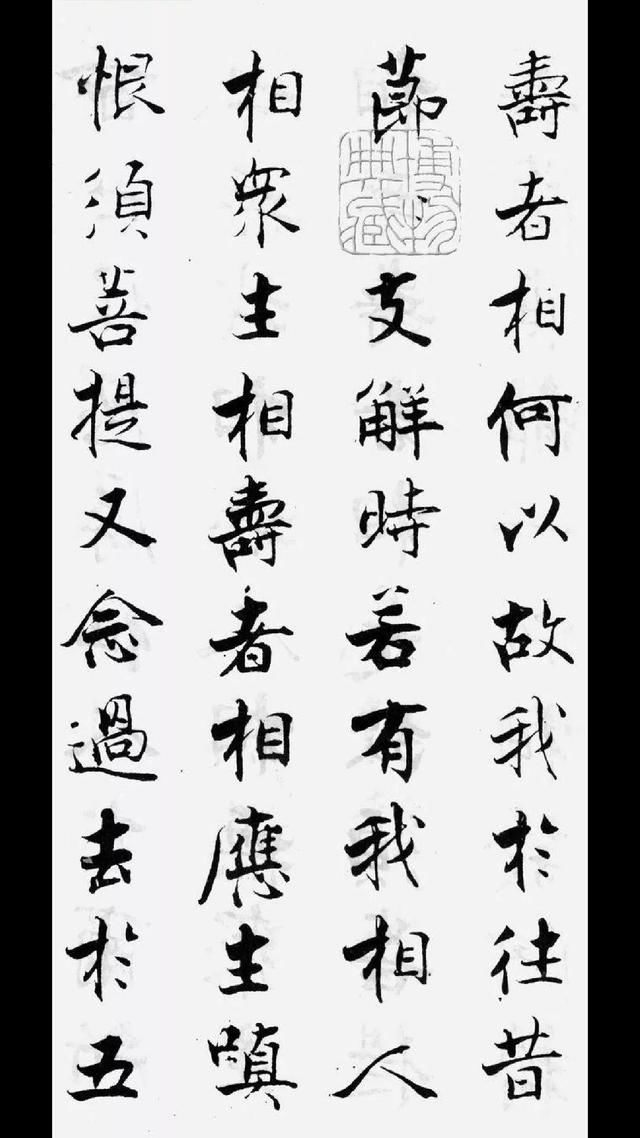 壽者相何以故我於往昔
節〻支解時若有我相人
相衆生相壽者相應生嗔
恨須菩提又念過去於五
博物典藏